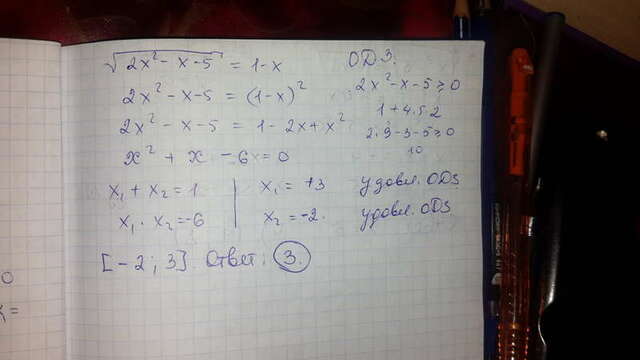 √2x² - x - 5 = 1 - x
2x² - x - 5 = (1-x)²
2x² - x - 5 = 1 - 2x + x²
x² + x - 6 = 0
x₁ + x₂ = 1
x₁ · x₂ = -6
x₁ = +3 удовл. ОДЗ.
x₂ = -2. удовл. ОДЗ
[-2; 3] Ответ: 3.
ОДЗ.
2x² - x - 5 ≥ 0
1 + 4·5·2
2·9 - 3 - 5 ≥ 0
10
0
=